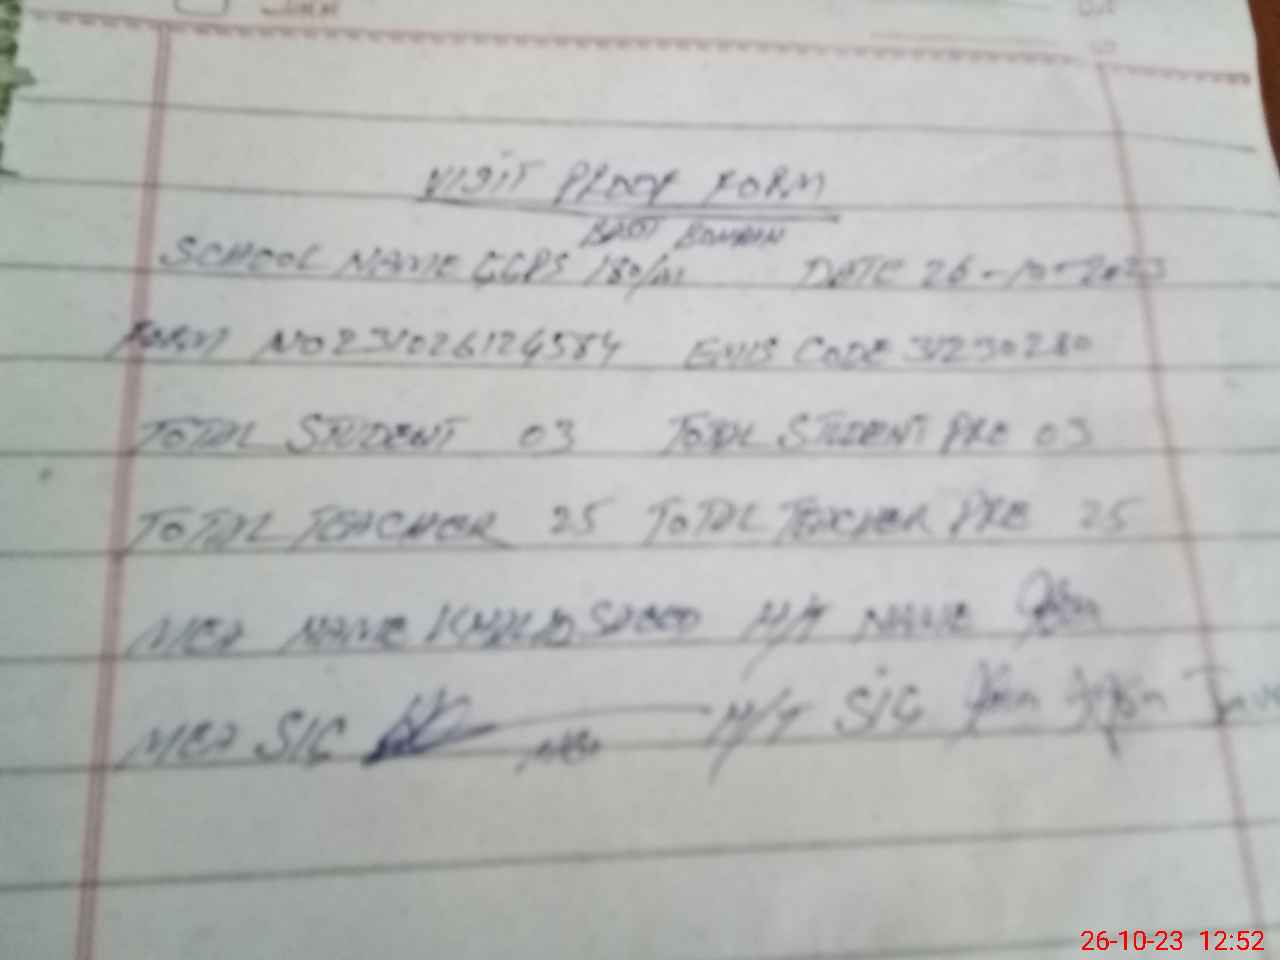 VISIT PROOF FORM
BASTI
SCHOOL NAME GGPS 180/M DATE 26-10-2023
FORM NO 231026124584 EMIS CODE 31230280
TOTAL STUDENT 03 TOTAL STUDENT PRE 03
TOTAL TEACHER 25 TOTAL TEACHER PRE 25
MEA NAME KHALID SAEED H/T NAME
MEA SIG MEA H/T SIG
26-10-23 12:52